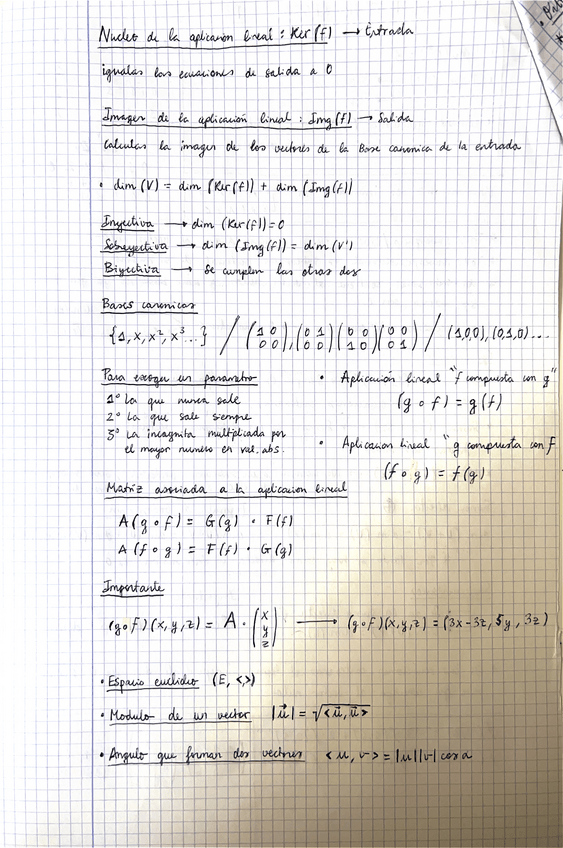 Nucleo de la aplicación lineal : Ker (f) → Entrada
igualas las ecuaciones de salida a 0
Imagen de la aplicación lineal : Img (f) → Salida
Calculas la imagen de los vectores de la Base canonica de la entrada
• dim (V) = dim (Ker (f)) + dim (Img (f))
Inyectiva → dim (Ker (f)) = 0
Sobreyectiva → dim (Img (f)) = dim (V')
Biyectiva → Se cumplen las otras dos
Bases canonicas
{1, x, x², x³ ...} / (1 0 / 0 0), (0 1 / 0 0) (0 0 / 1 0) (0 0 / 0 1) / (1,0,0), (0,1,0) ...
Para escoger un parametro
1º La que nunca sale
2º La que sale siempre
3º La incognita multiplicada por
el mayor numero en val. abs.
• Aplicación lineal "f compuesta con g"
(g ∘ f) = g (f)
• Aplicacion lineal "g compuesta con F
(f ∘ g) = f (g)
Matriz asociada a la aplicacion lineal
A (g ∘ f) = G (g) · F (f)
A (f ∘ g) = F (f) · G (g)
Importante
(g ∘ F) (x, y, z) = A · (x y z) → (g ∘ F) (x, y, z) = (3x - 3z, 5y, 3z)
• Espacio euclideo (E, <>)
• Modulo de un vector |u⃗| = √<u⃗, u⃗>
• Angulo que forman dos vectores <u, v> = |u| |v| cos α